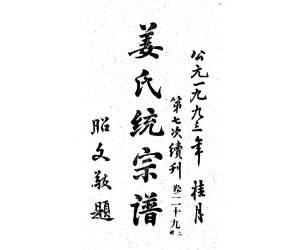 公元一九九三年 桂月
第七次續刊 卷二十九
姜氏统宗谱
昭文敬題